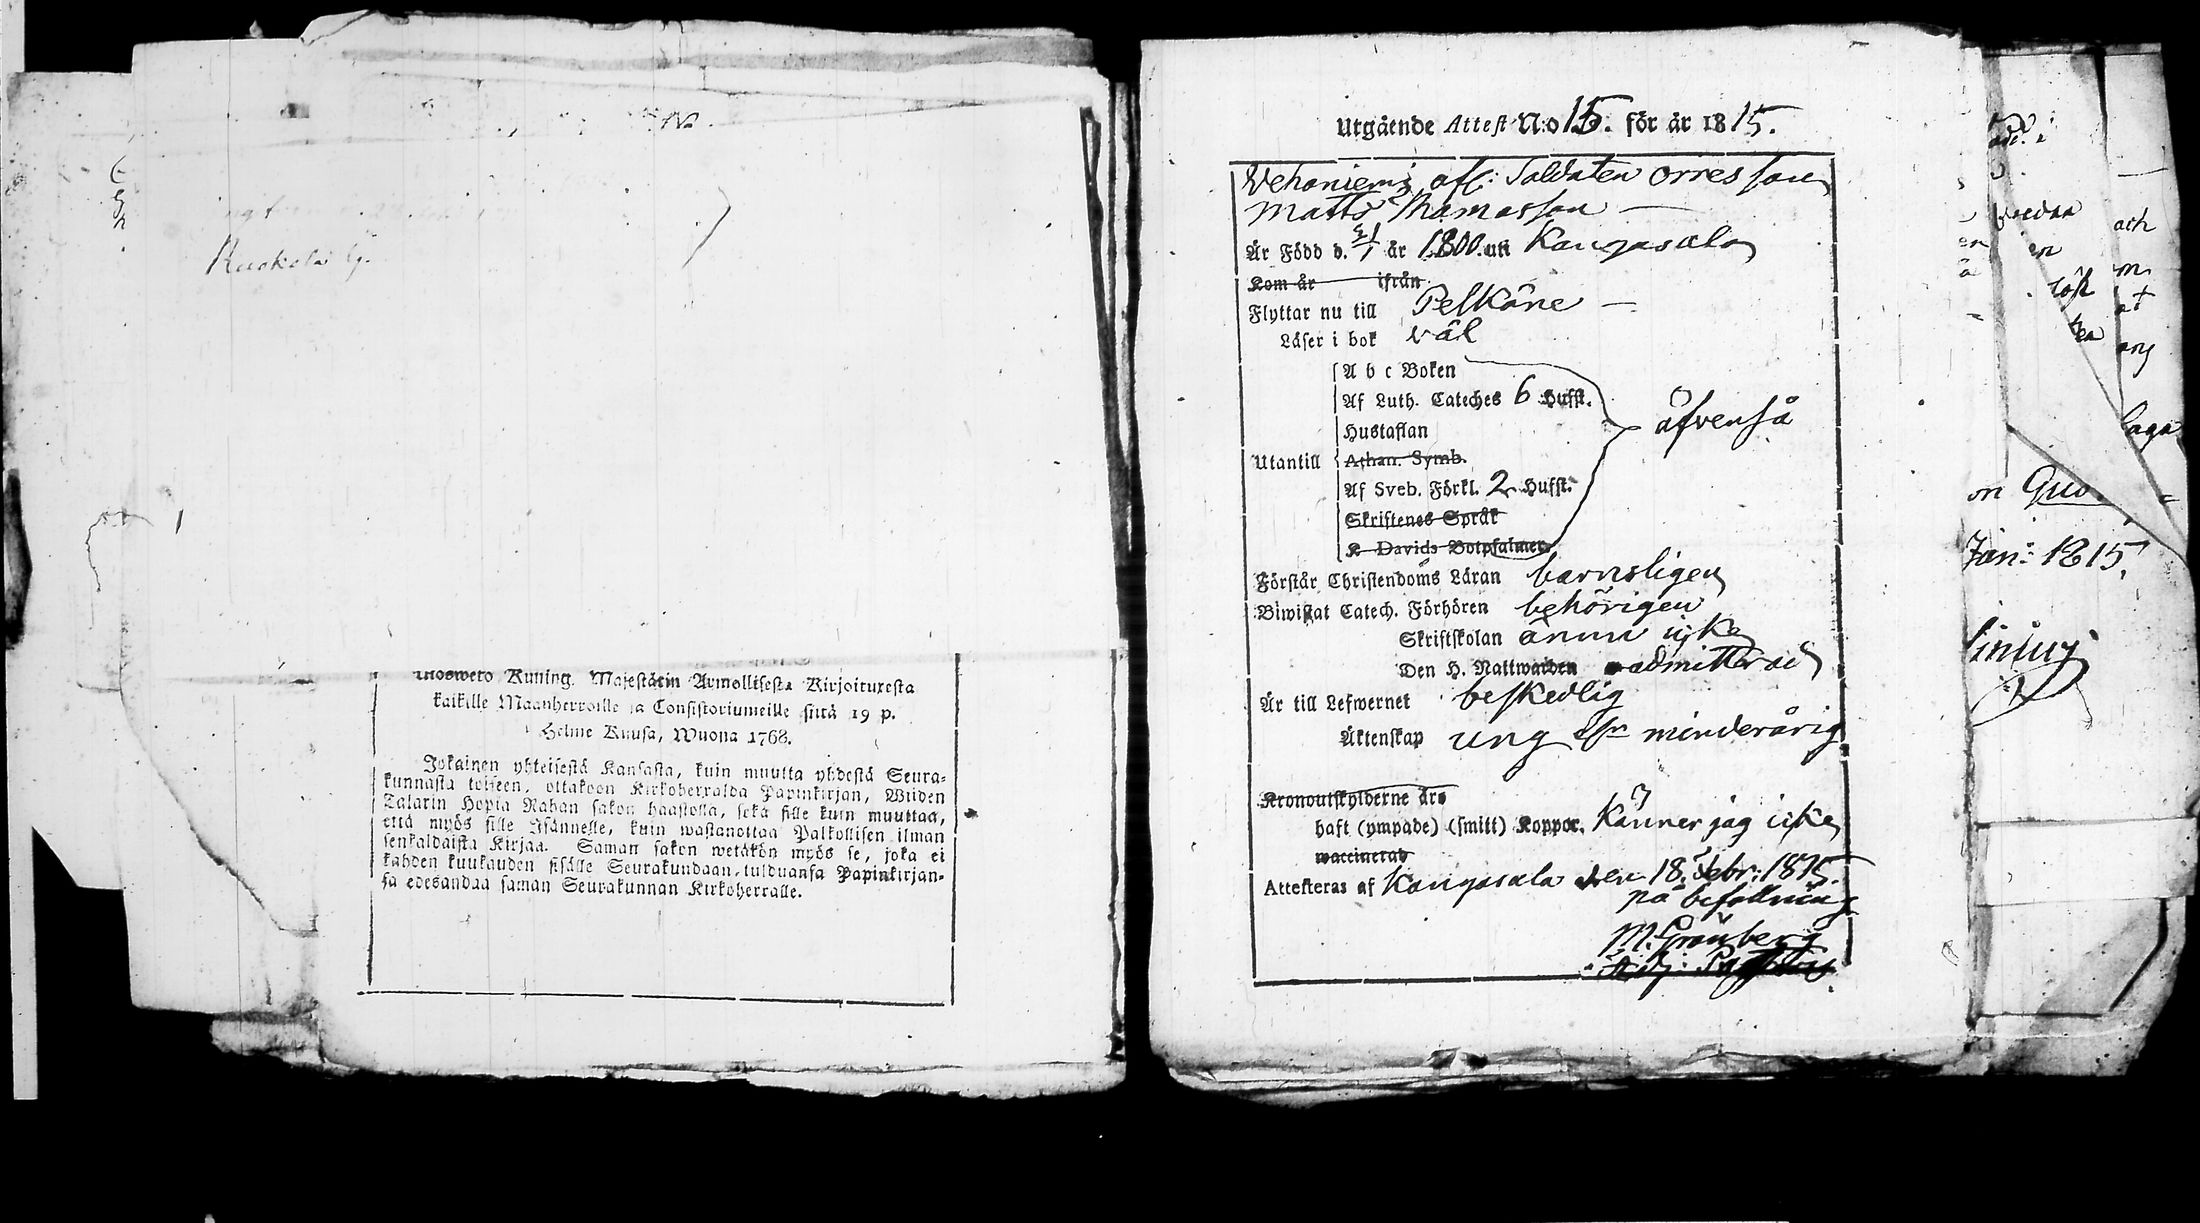 No.
Kuokola by.
Ulosweto Kuning. Majestätin Armollisesta Kirjoituxesta
kaikille Maanherroille ja Consistoriumeille siitä 19 p.
Helme Kuusa, Wuona 1768.
Jokainen yhteisestä Kansasta, kuin muutta yhdestä Seura-
kunnasta toiseen, ottakoon Kirkoherralda Papinkirjan, Wiiden
Talarin Hopia Rahan sakon haastolla, sekä sille kuin muuttaa,
että myös sille Isännelle, kuin wastanottaa Palkollisen ilman
senkaldaista Kirjaa. Saman sakon wetäkön myös se, joka ei
kahden kuukauden sisälle Seurakundaan, tulduansa Papinkirjan-
sa edesandaa saman Seurakunnan Kirkoherralle.
Utgående Attest N:o 15. för år 1815.
Vehoniemi afl: Soldaten Orres son
Matts Thomasson —
Är Född d. 21/1 år 1800. uti Kangasala
Kom år ifrån
Flyttar nu till Pelkäne —
Läser i bok väl
A b c Boken
Af Luth. Cateches 6 Hufst.
äfvenså
Hustaflan
Utantill Athan. Symb.
Af Sveb. Förkl. 2 Hufst.
Skriftenes Språk
K Davids Botpsalmer
Förstår Christendoms Läran barnsligen
Biwistat Catech. Förhören behörigen
Skriftskolan ännu icke
Den H. Nattwarden admitterad
Är till Lefwernet beskedlig
Äktenskap ung minderårig
Kronoutskylderne äro
haft (ympade) (smitt) Koppor. Känner jag icke
waccinerad
Attesteras af Kangasala den 18. Febr: 1815.
på befallning
M. Grönberg
Adj:
och
en
löst
at
ten
any
laga
on
Jan: 1815.